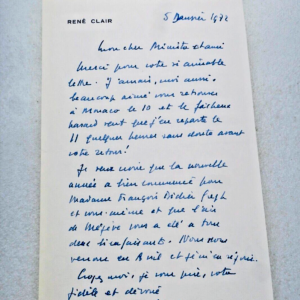 RENÉ CLAIR
5 Janvier 1972
Mon cher Ministre et ami
Merci pour votre si aimable
lettre. J'aurais, moi aussi,
beaucoup aimé vous retrouver
à Monaco le 10 et le fâcheux
hasard veut que j'en reparte le
11 quelques heures sans doute avant
votre retour!
Je veux croire que la nouvelle
année a bien commencé pour
Madame François Didier Gregh
et vous-même et que l'air
de Megève vous a été à tous
deux bienfaisant. Nous nous
verrons en Avril et j'en suis réjoui.
Croyez-moi, je vous prie, votre
fidèle et dévoué